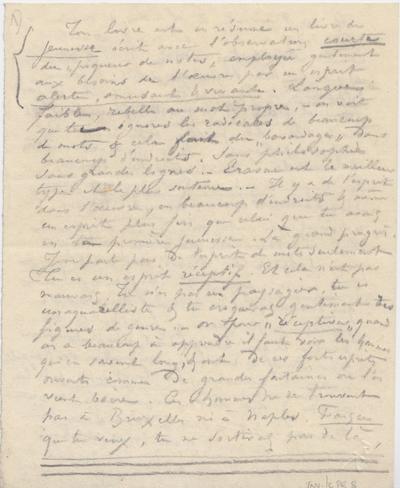 Ton livre est en résumé un livre de
jeunesse écrit avec l'observation courte
du piqueur de notes, employée gentiment
aux besoins de l'œuvre par un esprit
alerte, amusant & vivant. Langue
faible, rebelle au mot propre, on voit
que tu ignores les radicales de beaucoup
de mots & cela des "bavardages" dans
beaucoup d'endroits. Sans philosophie
sans grandes lignes. est le meilleur
type et le plus Il y a de l'esprit
dans l'œuvre, en beaucoup d'endroits &
un esprit plus fin que celui que tu avais
en ta première jeunesse. grand progrès.
Ton part pas de l'esprit de mots seulement
Tu es un esprit réceptif. Et cela n'est pas
mauvais. Tu n'es pas un paysagiste, tu es
un aquarelliste & tu croqueras gentiment des
figures de genre. or "réceptives", quand
on a beaucoup à apprendre il faut voir les hommes
qui en savent long, Ces forts esprits
sont comme de grandes fontaines où l'on
vient boire. Ces hommes ne se trouvent
pas à Bruxelles ni à Naples.
que tu veux, tu ne sortiras pas de là,